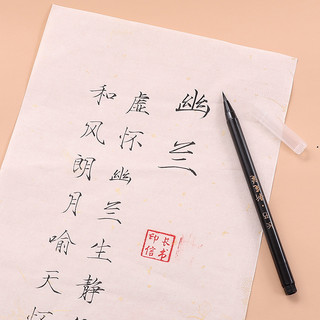 幽兰
虚怀幽兰生静
和风朗月喻天怀
长书
印信